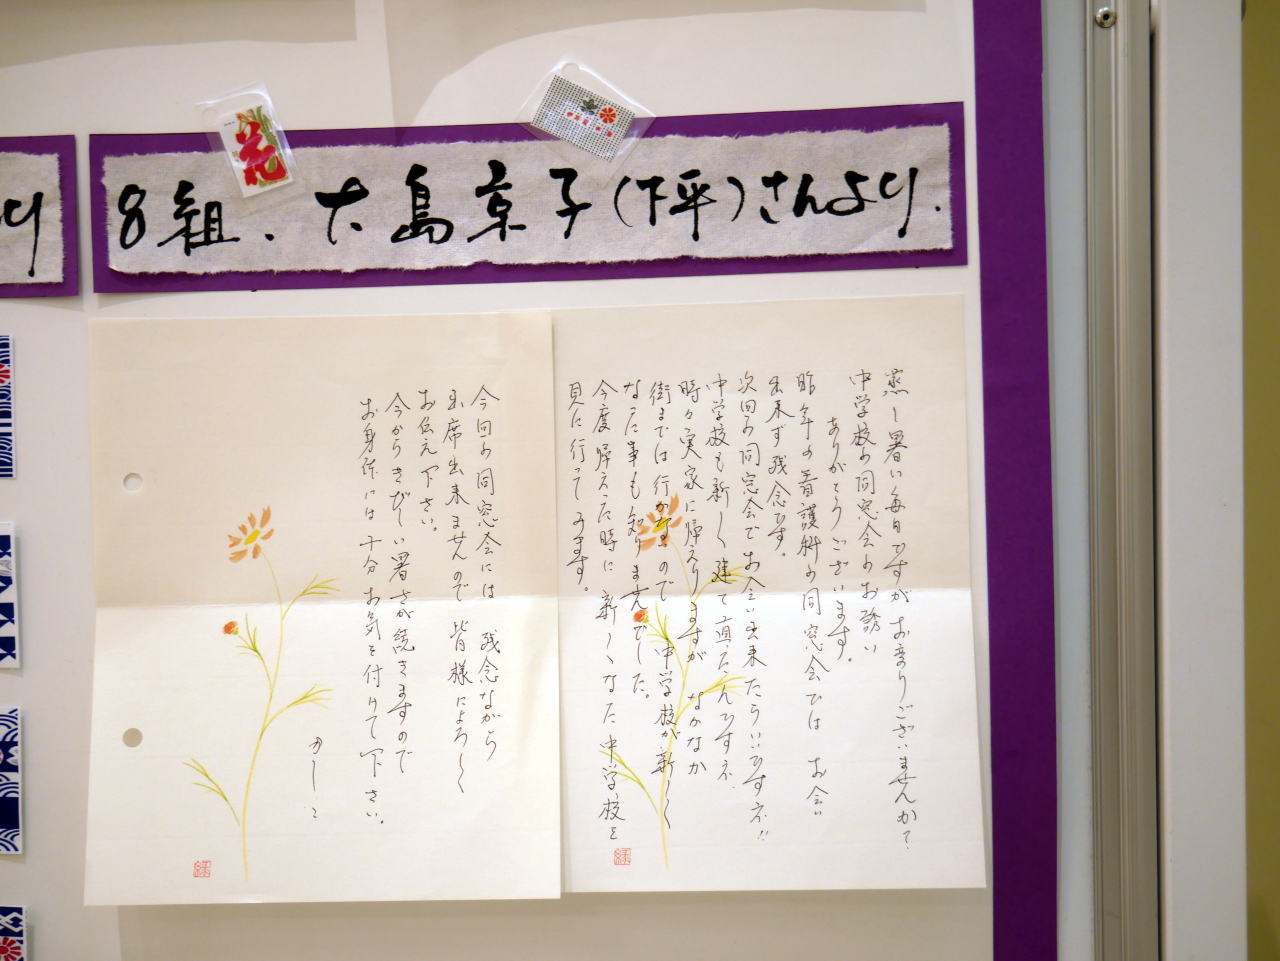 より
8組.大島京子(下平)さんより.
花
蒸し暑い毎日ですがお変りございませんか?
中学校の同窓会のお誘い
ありがとうございます。
昨年の看護科の同窓会では お会い
出来ず残念です。
次回の同窓会でお会い出来たらいいですネ!!
中学校も新しく建て直ったんですネ.
時々実家に帰えりますが なかなか
街までは行かないので 中学校が新しく
なった事も知りませんでした。
今度帰えった時に新しくなった中学校を
見に行ってみます。
今回の同窓会には 残念ながら
出席出来ませんので 皆様によろしく
お伝え下さい。
今からきびしい暑さが続きますので
お身体には十分お気を付けて下さい。
かしこ